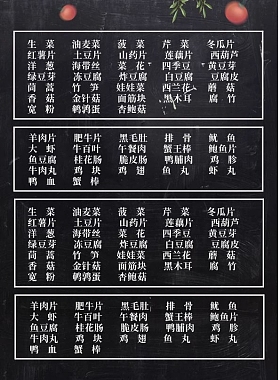 生 菜 油麦菜 菠 菜 芹 菜 冬瓜片
红薯片 土豆片 山药片 莲藕片 西葫芦
洋 葱 海带丝 菜 花 四季豆 黄豆芽
绿豆芽 冻豆腐 炸豆腐 白豆腐 豆腐皮
茼 蒿 竹 笋 娃娃菜 西兰花 蘑 菇
香 菇 金针菇 面筋块 黑木耳 腐 竹
宽 粉 鹌鹑蛋 杏鲍菇
羊肉片 肥牛片 黑毛肚 排 骨 鱿 鱼
大 虾 牛百叶 午餐肉 蟹 棒 虾 丸
鱼豆腐 桂花肠 脆皮肠 鸭脯肉 鸡 胗
牛肉丸 鸡 块 鸡 翅 鱼 丸 虾 丸
鸭 血 蟹 棒
生 菜 油麦菜 菠 菜 芹 菜 冬瓜片
红薯片 土豆片 山药片 莲藕片 西葫芦
洋 葱 海带丝 菜 花 四季豆 黄豆芽
绿豆芽 冻豆腐 炸豆腐 白豆腐 豆腐皮
茼 蒿 竹 笋 娃娃菜 西兰花 蘑 菇
香 菇 金针菇 面筋块 黑木耳 腐 竹
宽 粉 鹌鹑蛋 杏鲍菇
羊肉片 肥牛片 黑毛肚 排 骨 鱿 鱼
大 虾 牛百叶 午餐肉 蟹 棒 虾 丸
鱼豆腐 桂花肠 脆皮肠 鸭脯肉 鸡 胗
牛肉丸 鸡 块 鸡 翅 鱼 丸 虾 丸
鸭 血 蟹 棒